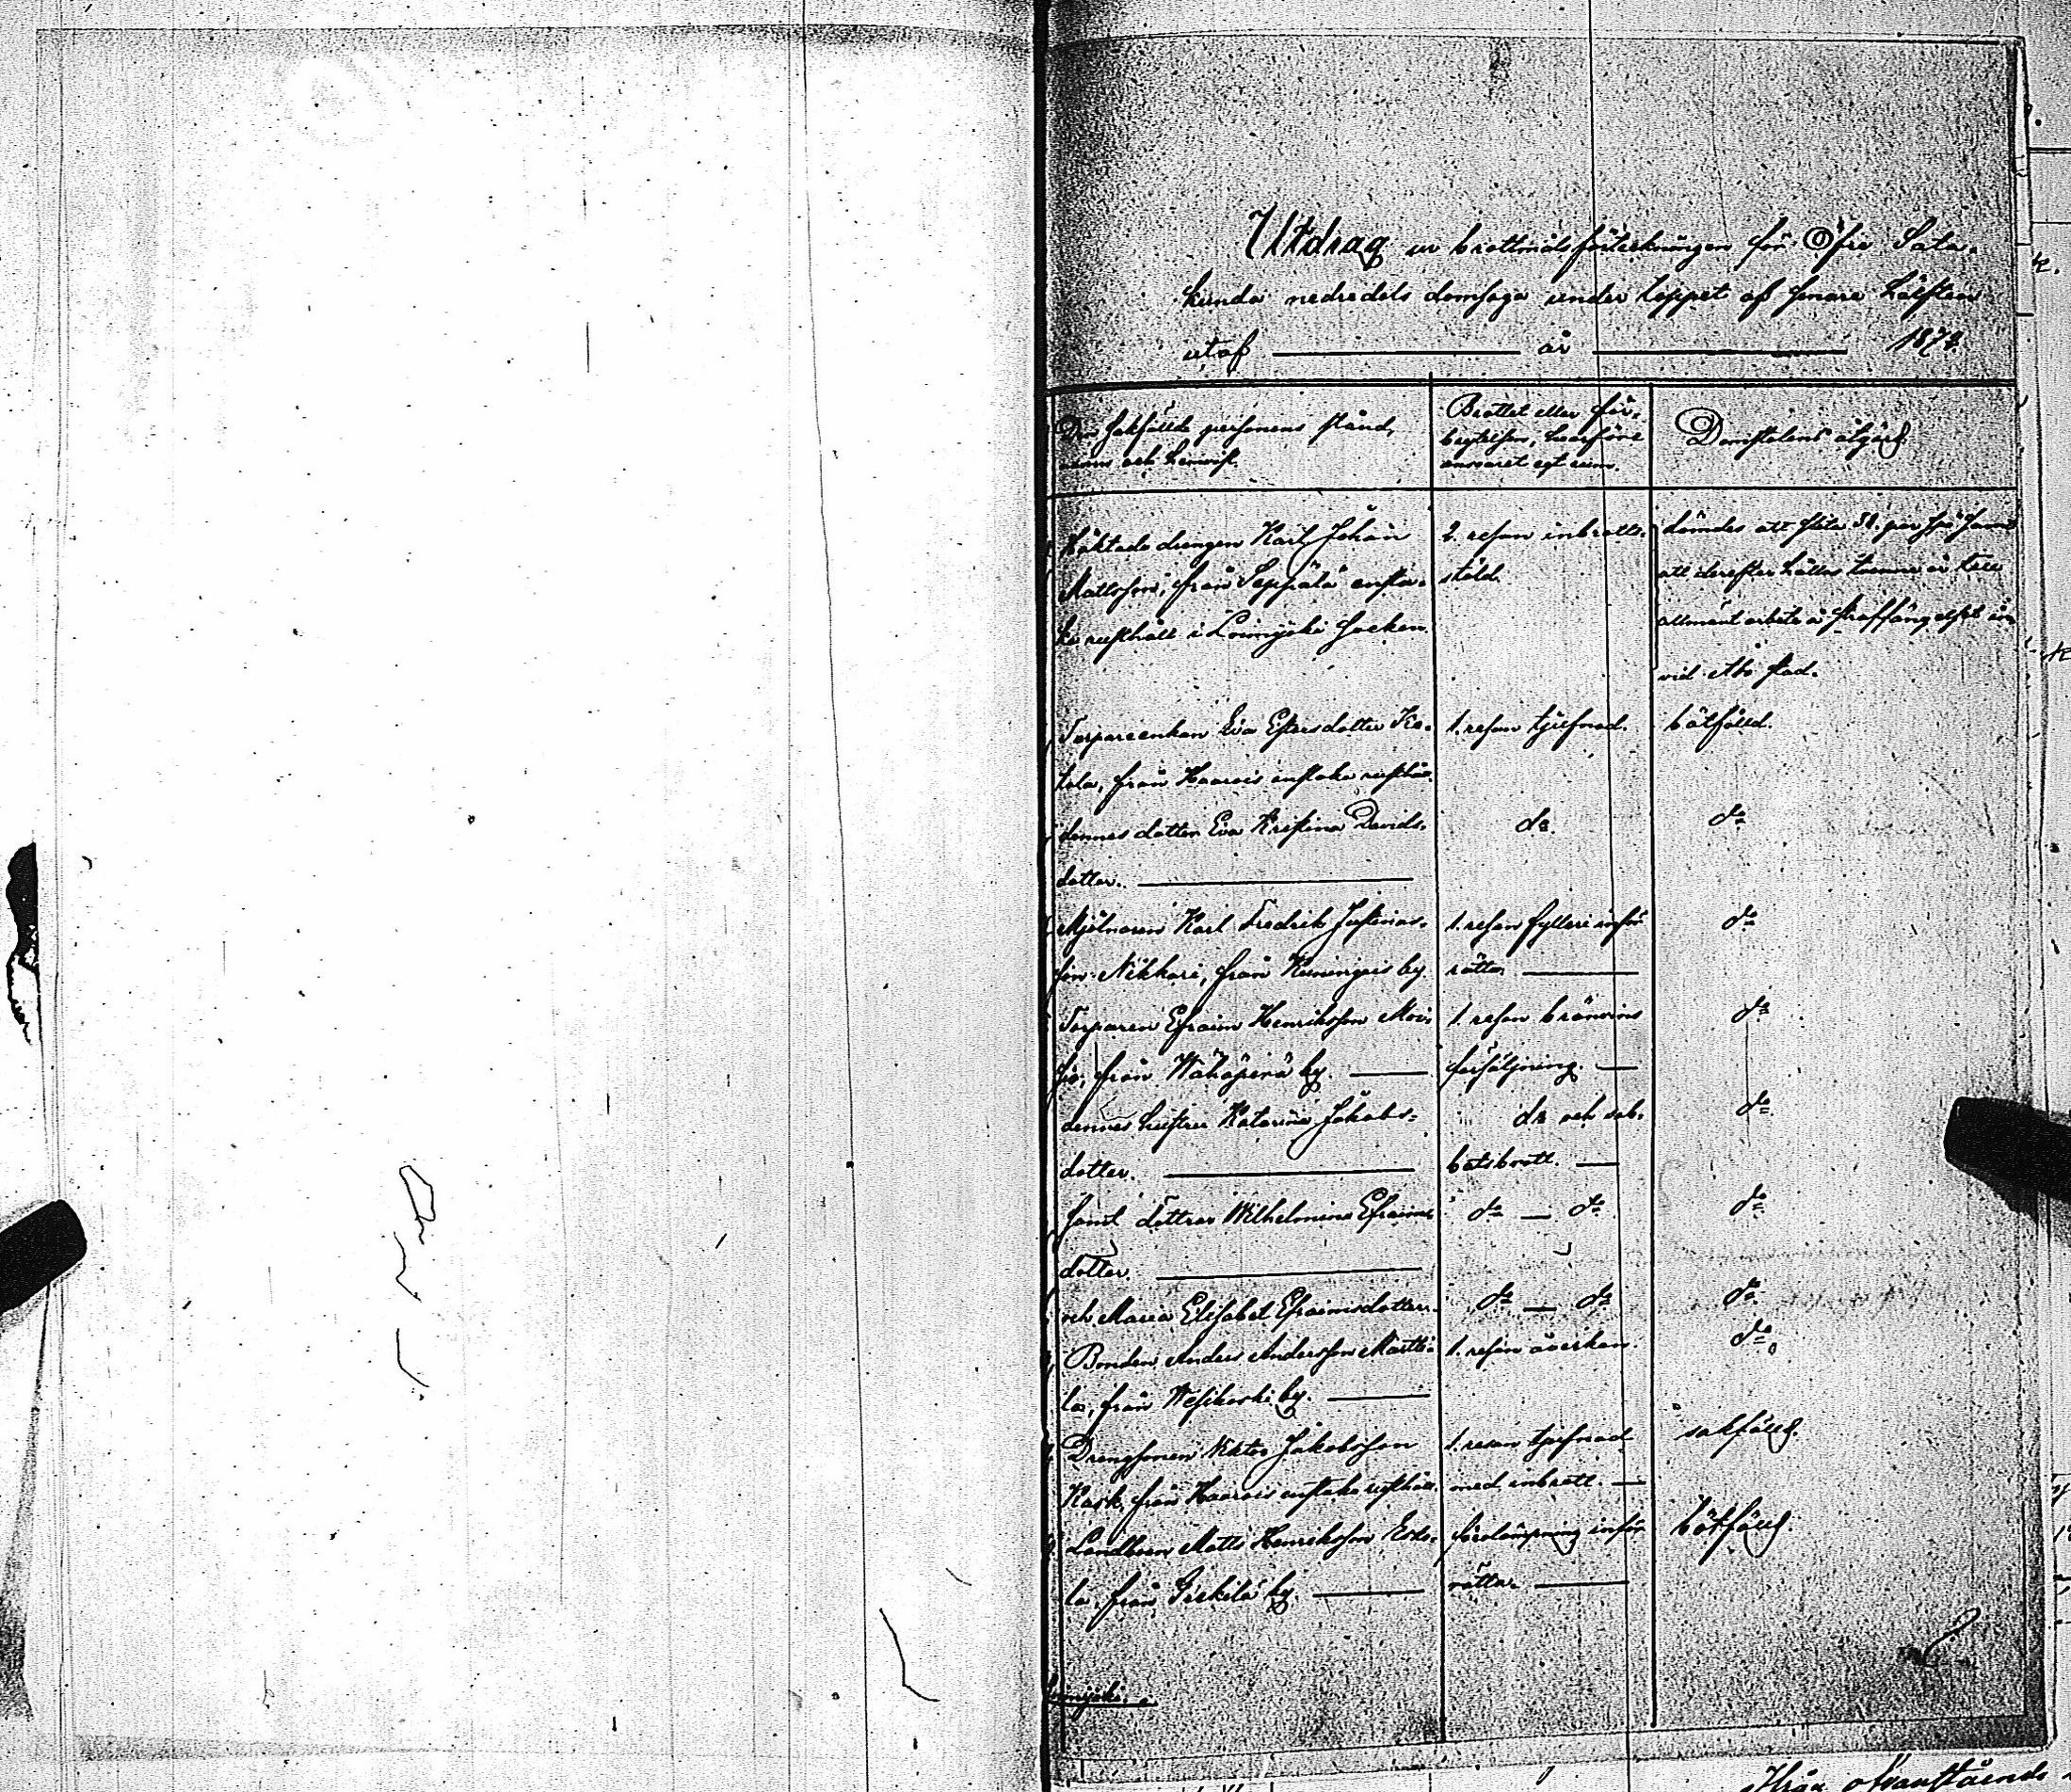 Utdrag ur brottmålsförteckningen för Öfre Sata-
kunda nedredels domsaga under loppet af senare hälften
utaf år 1874.
Den sakfällde personens stånd,
namn och hemvist.
Brottet eller för-
brytelsen, hvarföre
ansvaret egt rum.
Domstolens åtgärd.
Häktade drengen Karl Johan
Mattsson, från Seppälä ensta-
ka rusthåll i Loimijoki socken.
2. resan inbrotts-
stöld.
dömdes att slita 38. par spö samt
att derefter hållas tvenne år till
allmänt arbete å straffängelset
vid Åbo stad.
Torpareenkan Eva Estersdotter
tala, från Haarois enstaka rusthåll.
1. resan tjufnad.
bötfälld.
dennes dotter Eva Kristina Davids-
dotter.
do.
do
Mjölnaren Karl Fredrik Justinas-
son Nikkari, från Kuningois by.
1. resan fylleri inför
rätta.
do
Torparen Efraim Henriksson Moi-
sio, från Wähäperä by.
1. resan bränvins
försäljning.
do
dennes hustru Katarina Jakobs-
dotter.
do och sab-
batsbrott.
do
samt döttrar Wilhelmina Efraims-
dotter.
do — do
do
och Maria Elisabet Efraimsdotter.
do — do
do
Bonden Anders Andersson Martti-
la, från Wesikoski by.
1. resan åverkan.
do
Drengsonen Viktor Jakobsson
Kask, från Haarois enstaka rusthåll.
1. resan tjufnad
med inbrott.
sakfälld.
Landboen Matts Henriksson
la, från Pirkilä by.
förolämpning inför
rätta.
bötfälld.
ofvanstående